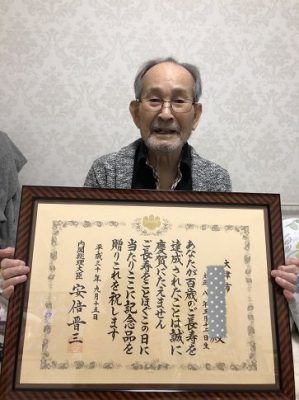 大津市 殿
八年三月 日生
あなたが百歳のご長寿を
達成されたことは誠に
慶賀にたえません
ご長寿をことほぐこの日に
当たりここに記念品を
贈りこれを祝します
平成三十年九月十五日
内閣総理大臣 安倍晋三